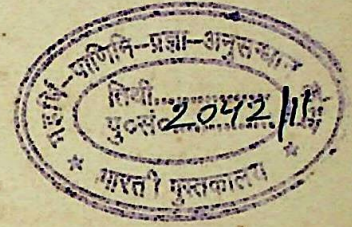 महर्षि-पाणिनि-प्रज्ञा-अनुसन्धान
तिथी..................
पु०सं० 2042/11
भारती पुस्तकालय